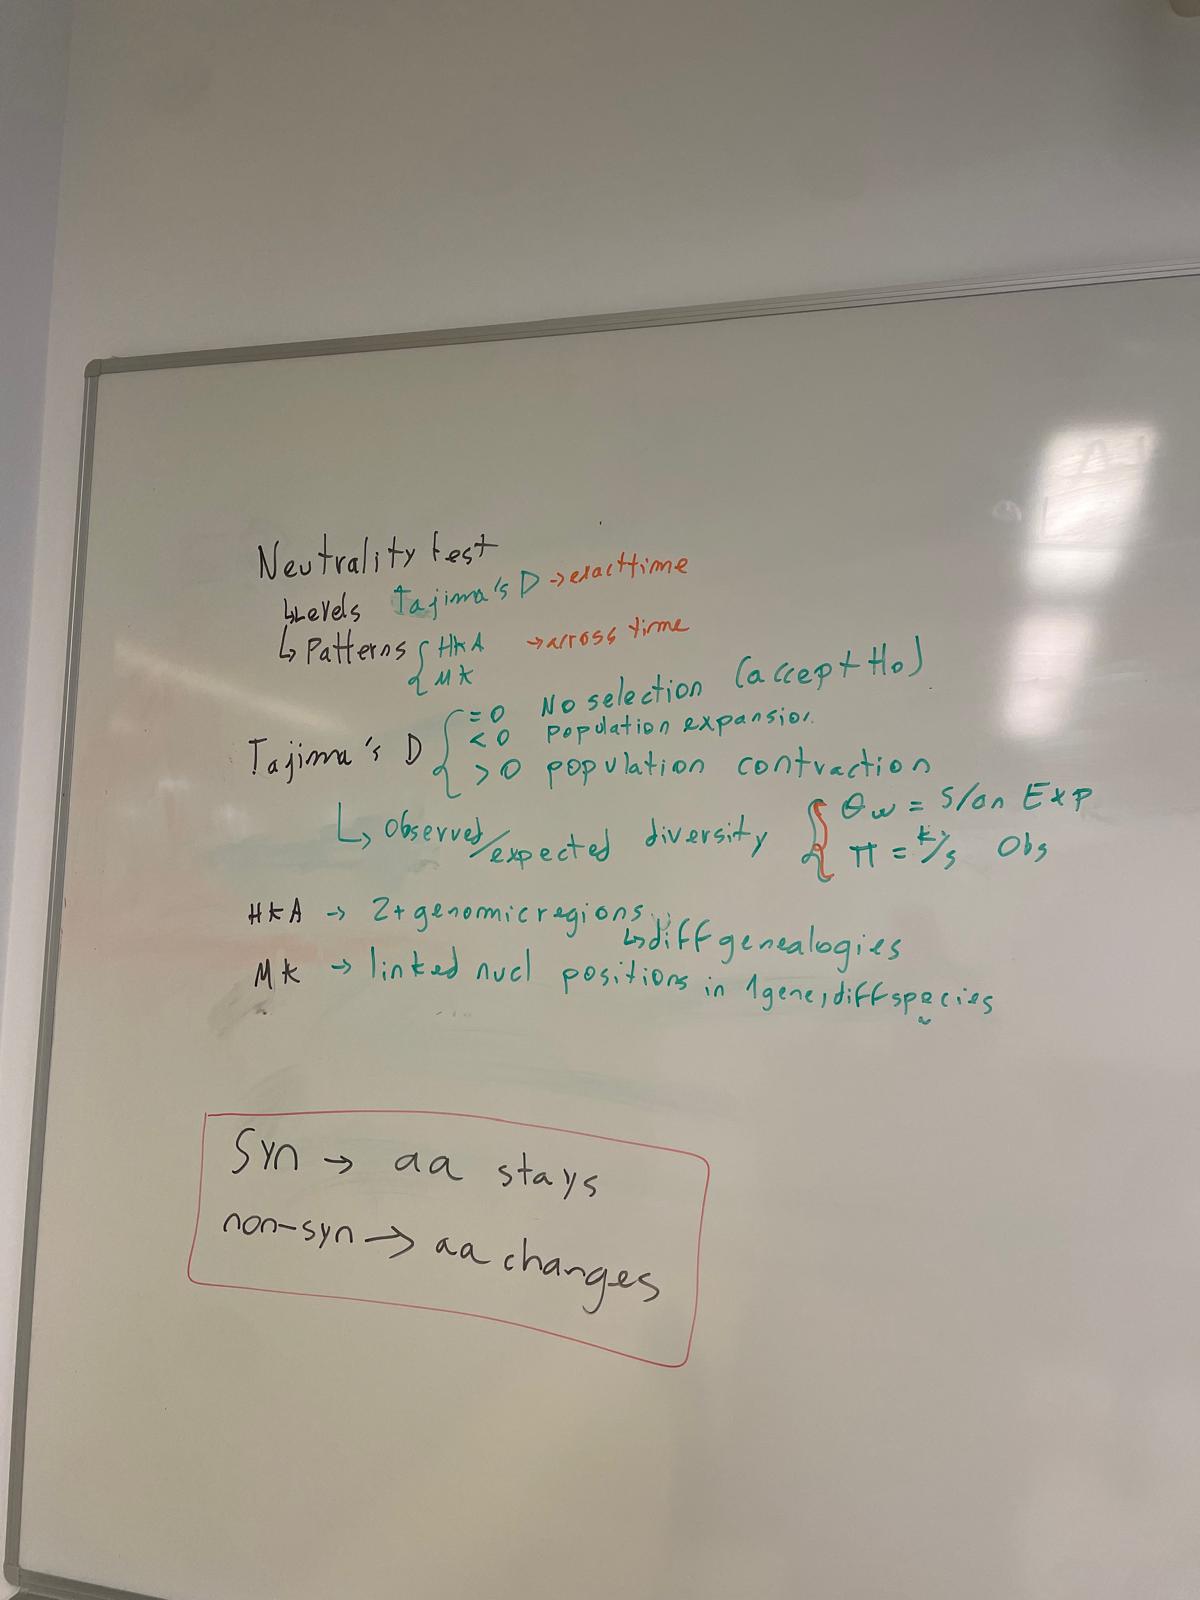 Neutrality test
↳ Levels Tajima's D → exact time
↳ Patterns { HKA → across time
{ MK
Tajima's D { = 0 No selection (accept H0)
< 0 population expansion
> 0 population contraction
↳ Observed/expected diversity { θw = S/an Exp
π = k/s Obs
HKA → 2+ genomic regions
↳ diff genealogies
MK → linked nucl positions in 1 gene, diff species
Syn → aa stays
non-syn → aa changes